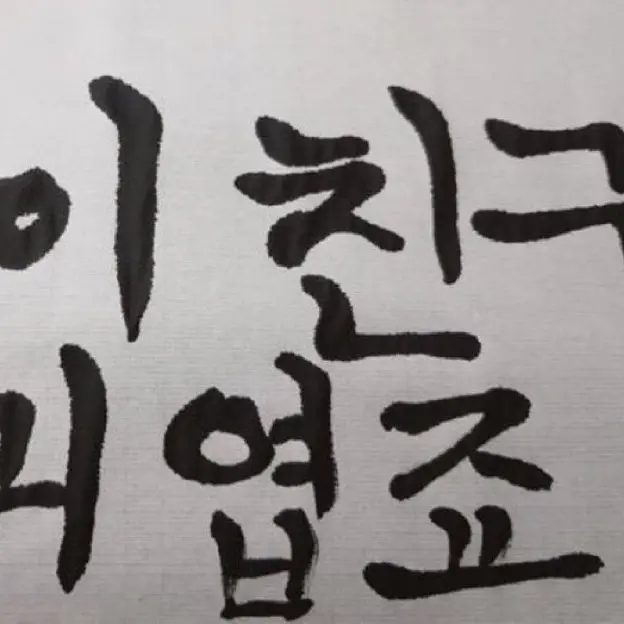 이 친구
귀엽죠